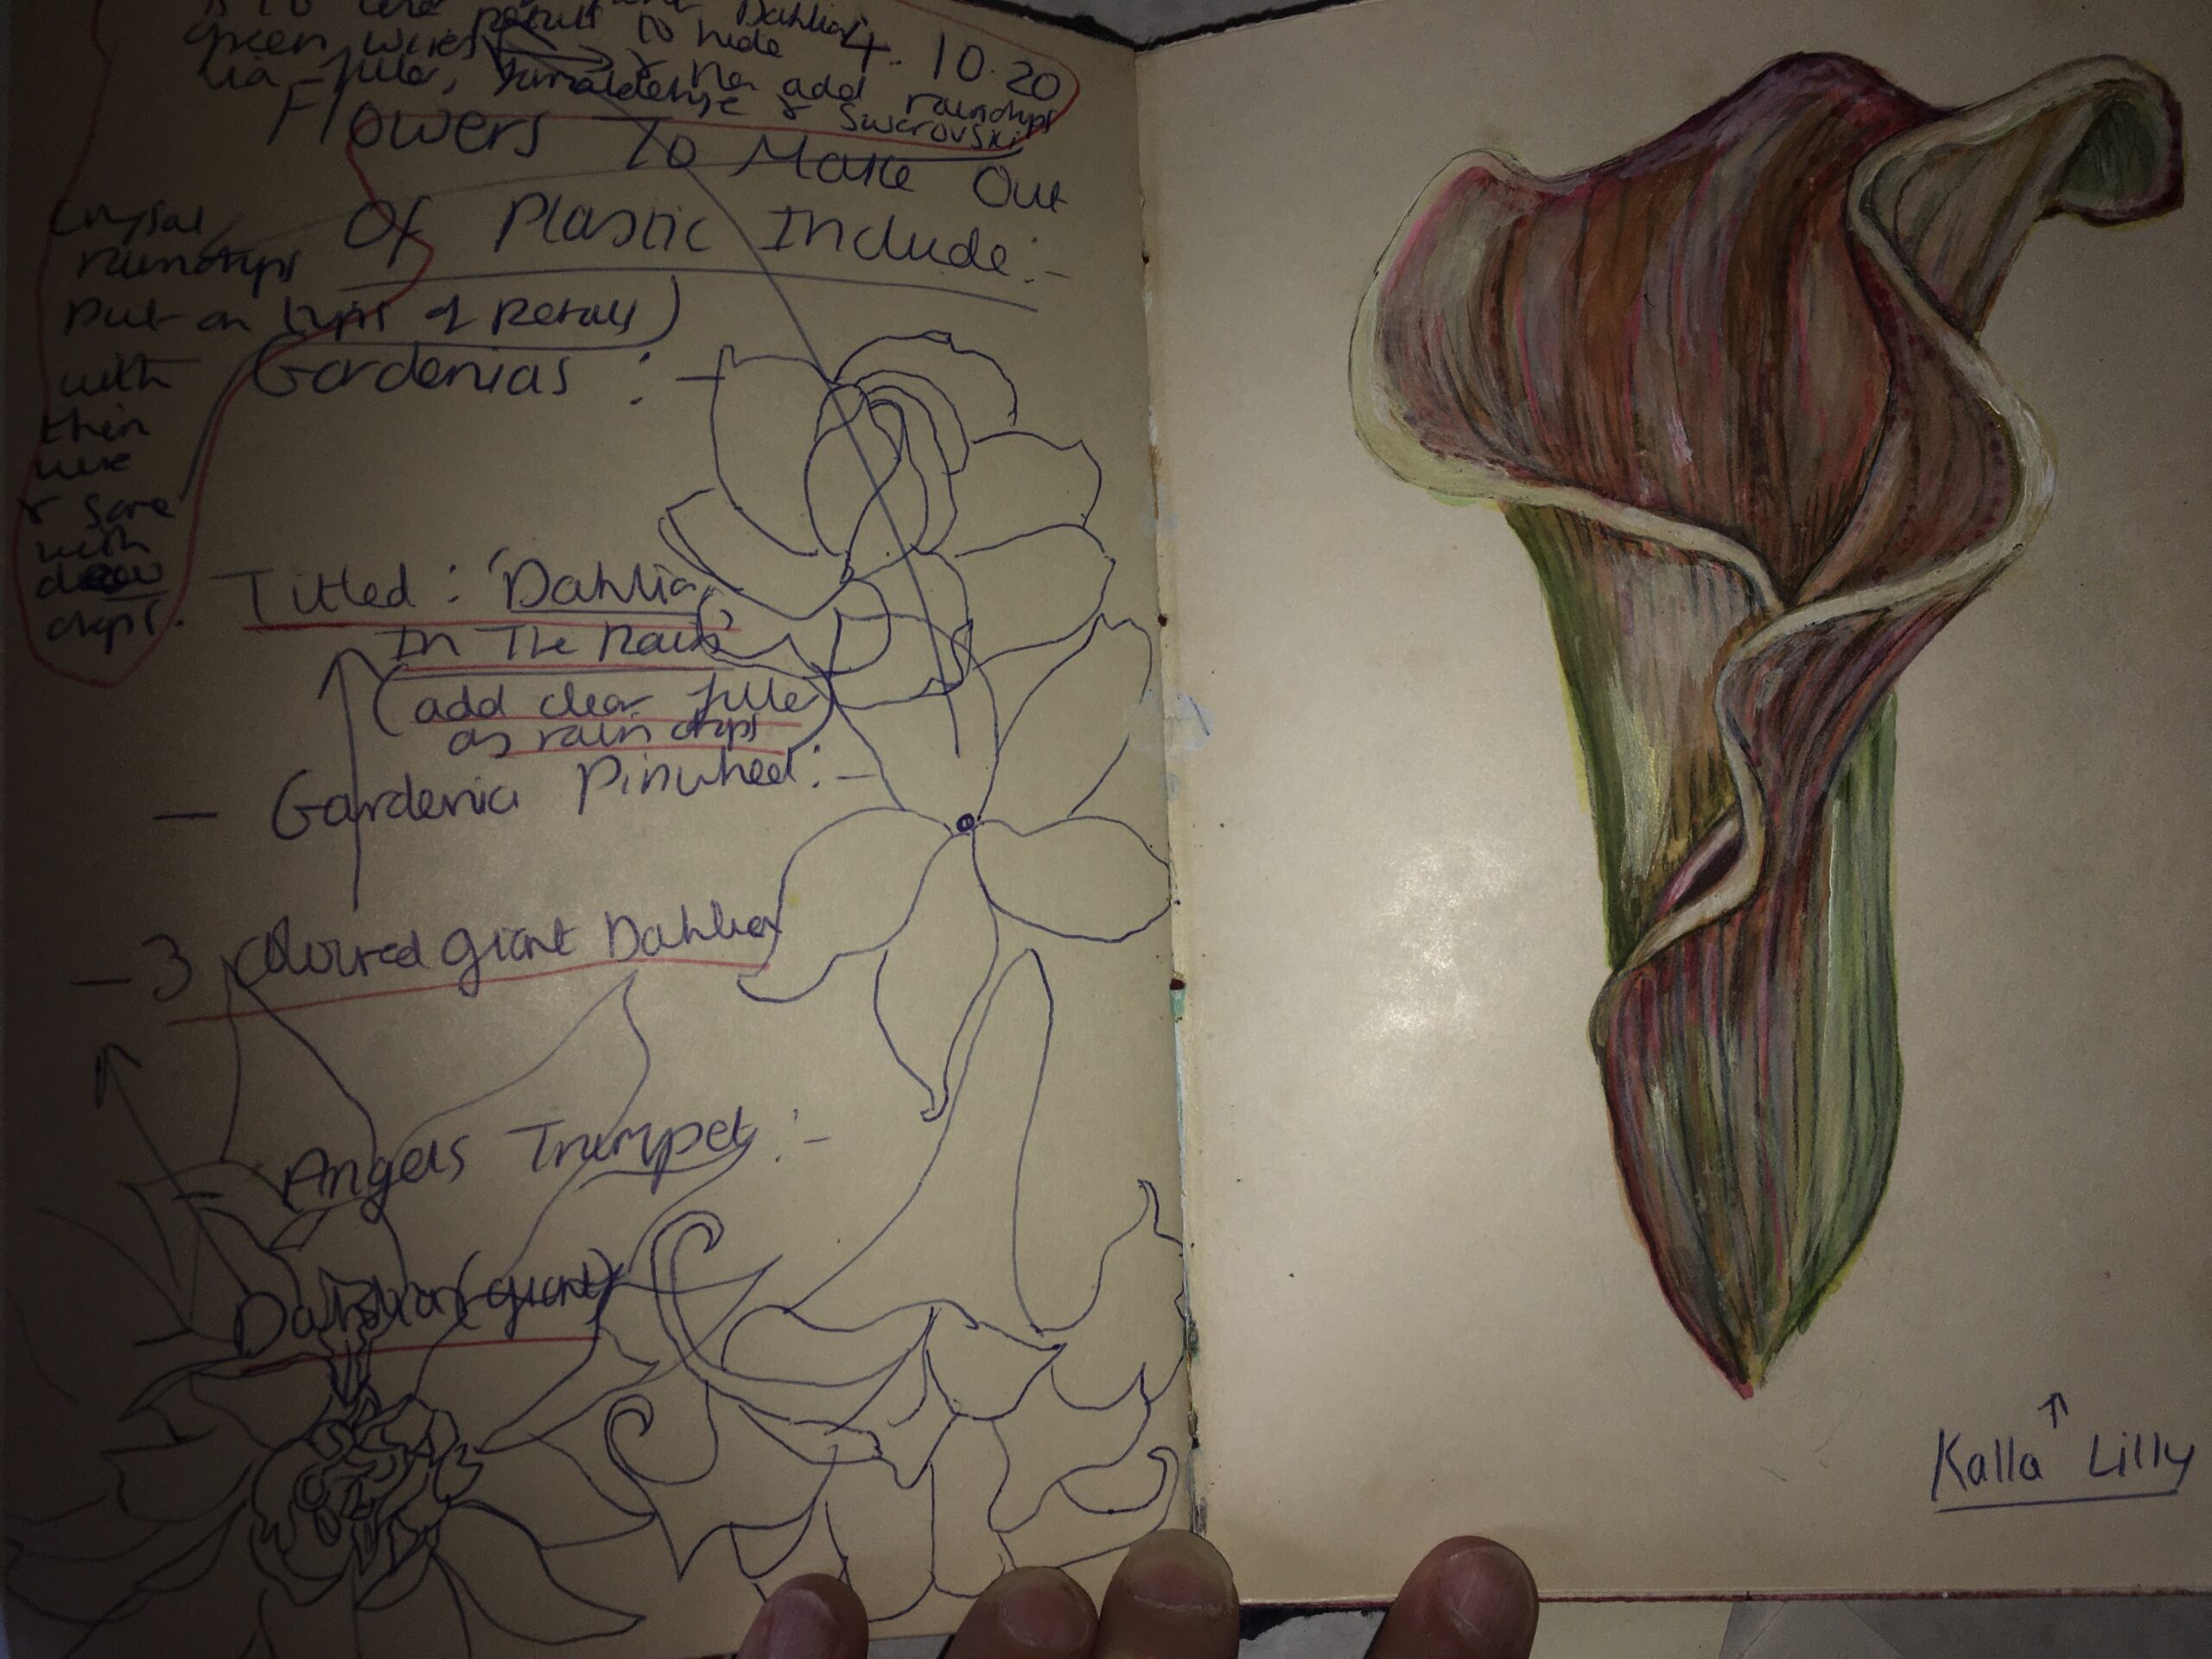 Dahlia
4. 10. 20
green wires petals to hide
add raindrops
& Swarovski
Flowers To Make Out
Of Plastic Include:-
Crystal
raindrops
put on tips of petals)
with
thin
wire
& some
with
drops.
Gardenias :-
Titled: 'Dahlia
In The Rain'
(add clear fille)
as rain drops
- Gardenia Pinwheel:-
- 3 coloured giant Dahlia
- Angels Trumpet:-
- Dahlia (giant)
Kalla Lilly